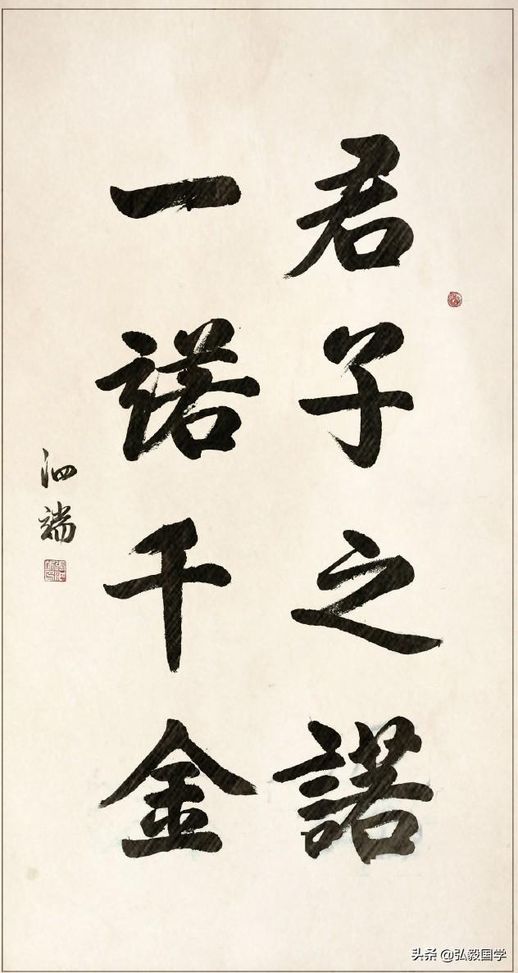 君子之諾
一諾千金
泗端
头条 @弘毅国学